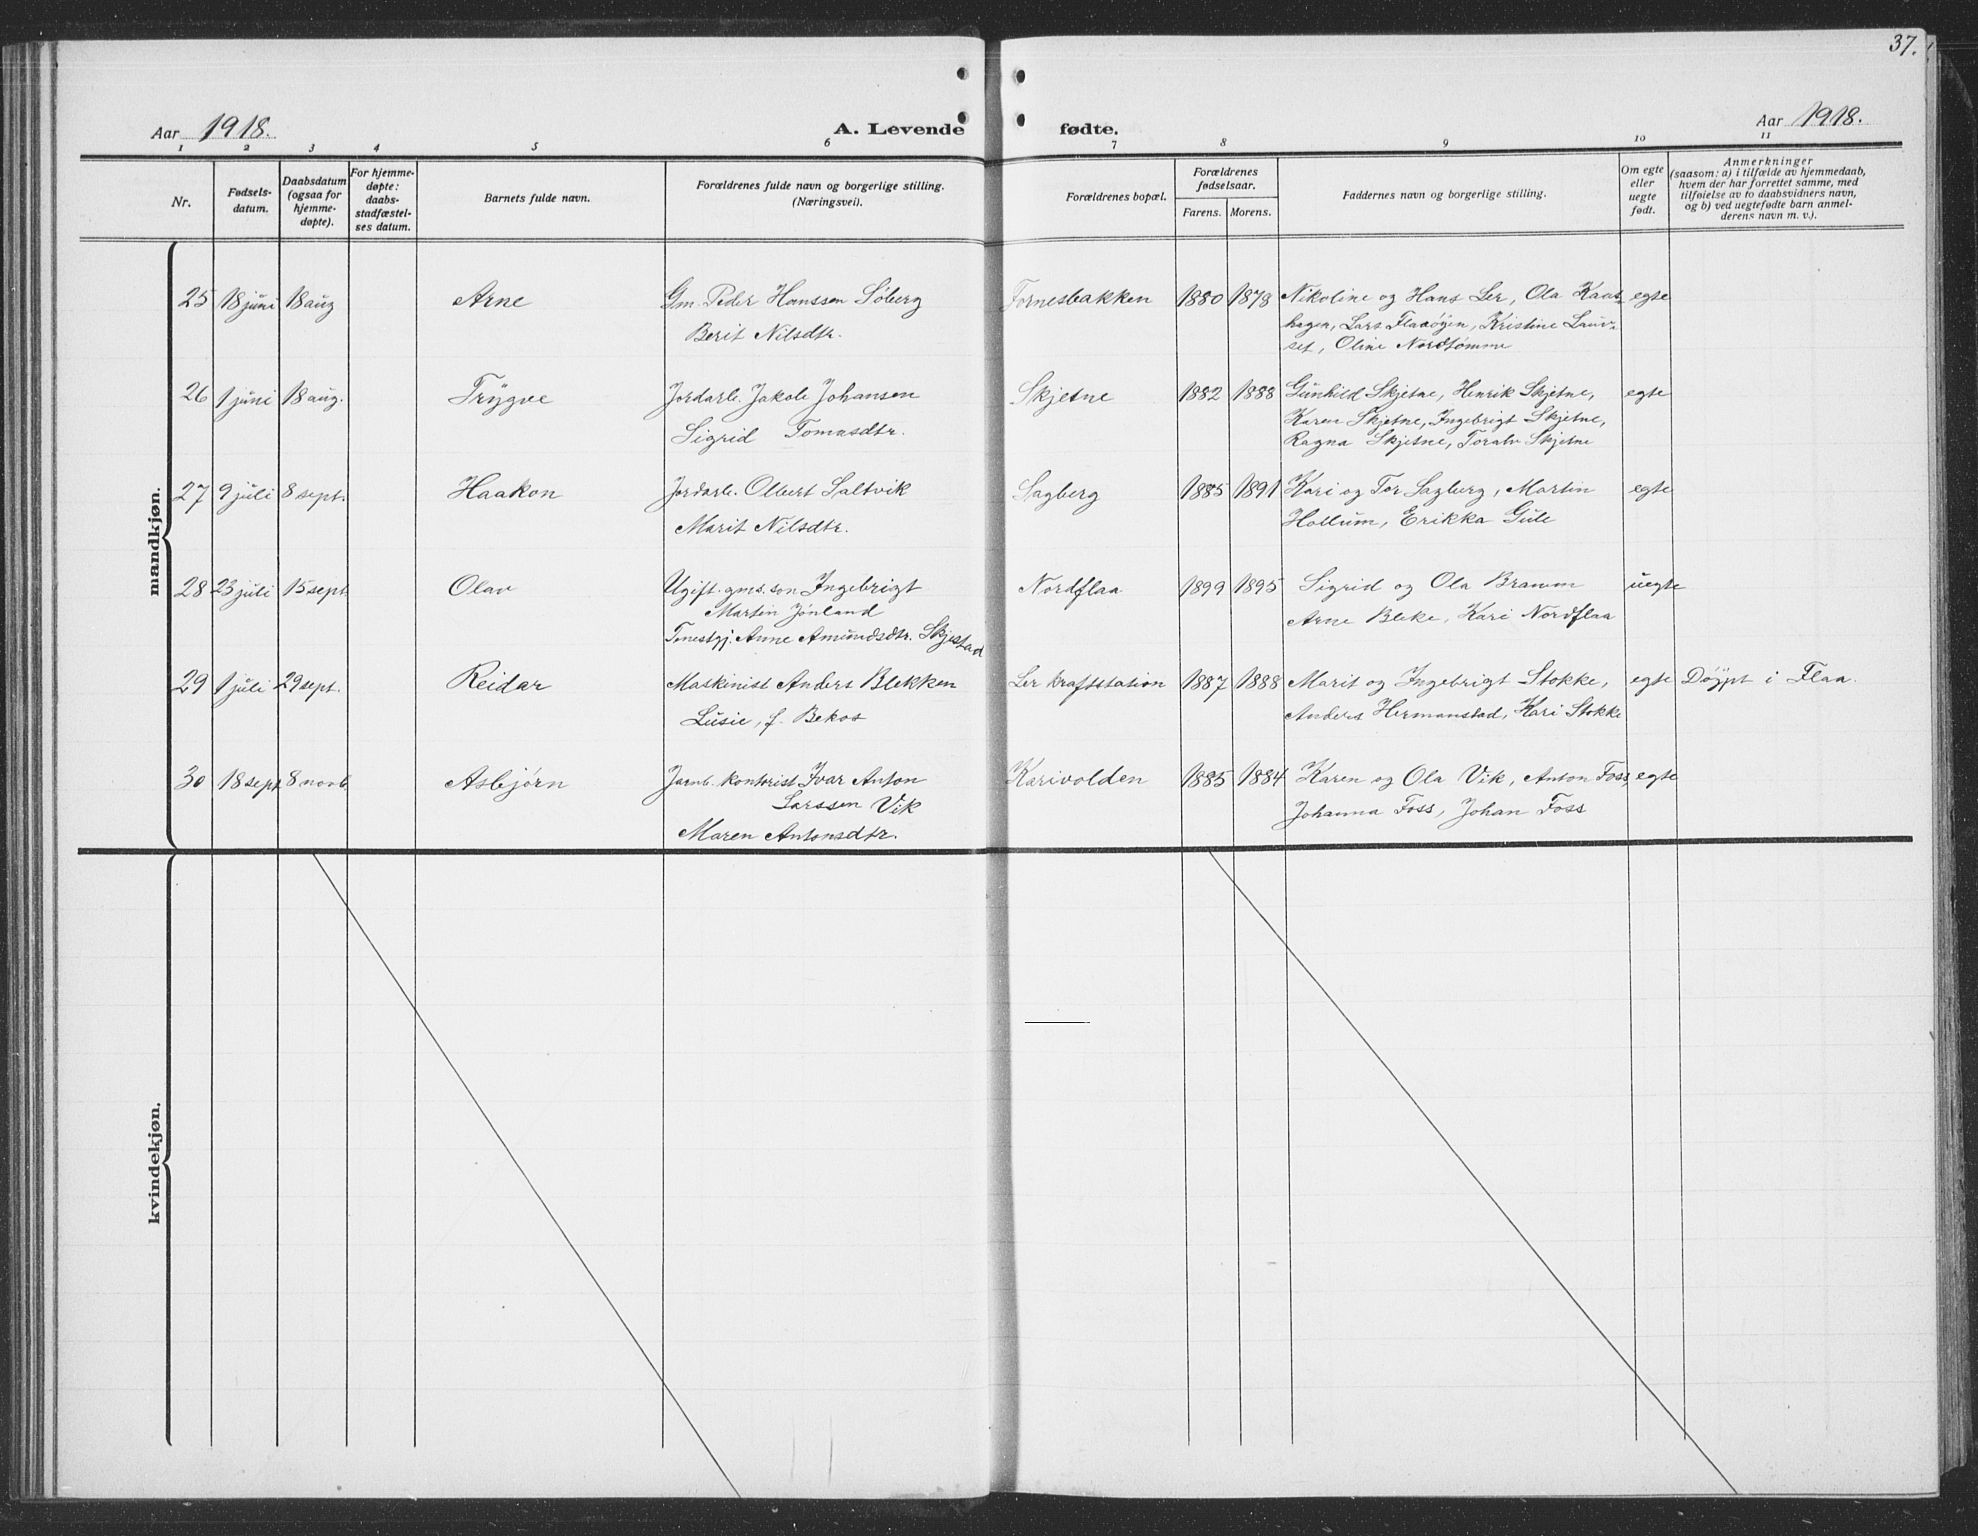 37.
Aar 1918. A. Levende fødte. Aar 1918.
1 2 3 4 5 6 7 8 9 10 11
Nr.
Fødselsdatum.
Daabsdatum (ogsaa for hjemmedøpte).
For hjemmedøpte: daabsstadfæstelses datum.
Barnets fulde navn.
Forældrenes fulde navn og borgerlige stilling. (Næringsvei).
Forældrenes bopæl.
Forældrenes fødselsaar.
Farens. Morens.
Faddernes navn og borgerlige stilling.
Om egte eller uegte født.
Anmerkninger
(saasom: a) i tilfælde av hjemmedaab,
hvem der har forrettet samme, med
tilføielse av to daabsvidners navn,
og b) ved uegtefødte barn anmelderens navn m. v.).
mandkjøn.
25 18 juni 18 aug Arne Gm. Peder Hanssen Söberg Fornesbakken 1880 1878 Nikoline og Hans Ler, Ola Kaas- egte
Berit Nilsdtr. hagen, Lars Flaaöyen, Kristine Lauv-
set, Oline Nordtömme
26 1 juni 18 aug. Trygve Jordarb. Jakob Johansen Skjetne 1882 1888 Gunhild Skjetne, Henrik Skjetne, egte
Sigrid Tomasdtr. Karen Skjetne, Ingebrigt Skjetne,
Ragna Skjetne, Toralv Skjetne
27 9 juli 8 sept. Haakon Jordarb. Olbert Saltvik Sagberg 1885 1891 Kari og Tor Sagberg, Martin egte
Marit Nilsdtr. Hollum, Erikka Gule
28 23 juli 15 sept Olav Ugift. gms. son Ingebrigt Nordflaa 1899 1895 Sigrid og Ola Bramm uegte
Martin Jönland Arne Bleke, Kari Nordflaa
Tenestgj. Anne Amundsdtr. Skjestad
29 1 juli 29 sept. Reidar Maskinist Anders Blekken Ler kraftstation 1887 1888 Marit og Ingebrigt Stokke, egte Döypt i Flaa.
Lusie, f. Bekos Anders Hermanstad, Kari Stokke
30 18 sept 8 novb. Asbjörn Jarnb. kontorist Ivar Anton Karivolden 1885 1884 Karen og Ola Vik, Anton Foss, egte
Larssen Vik Johanna Foss, Johan Foss
Maren Antonsdtr.
kvindekjøn.